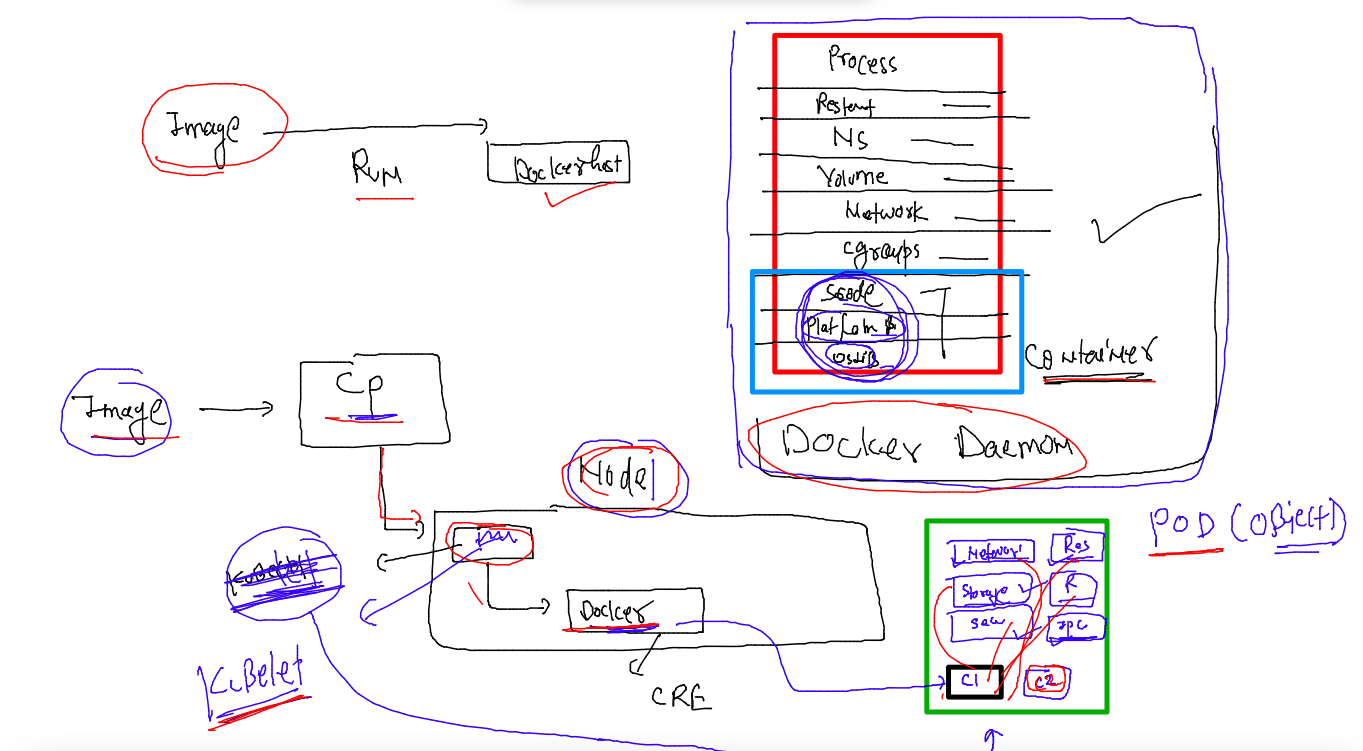 Image
Run
Dockerhost
Process
Restart
NS
Volume
Network
cgroups
Scode
Platform
OSLIB
Container
Docker Daemon
Image
CP
Node
Docker
CRE
KuBelet
POD (OBject)
Network
Res
Storage
R
Sec
IPC
C1
C2